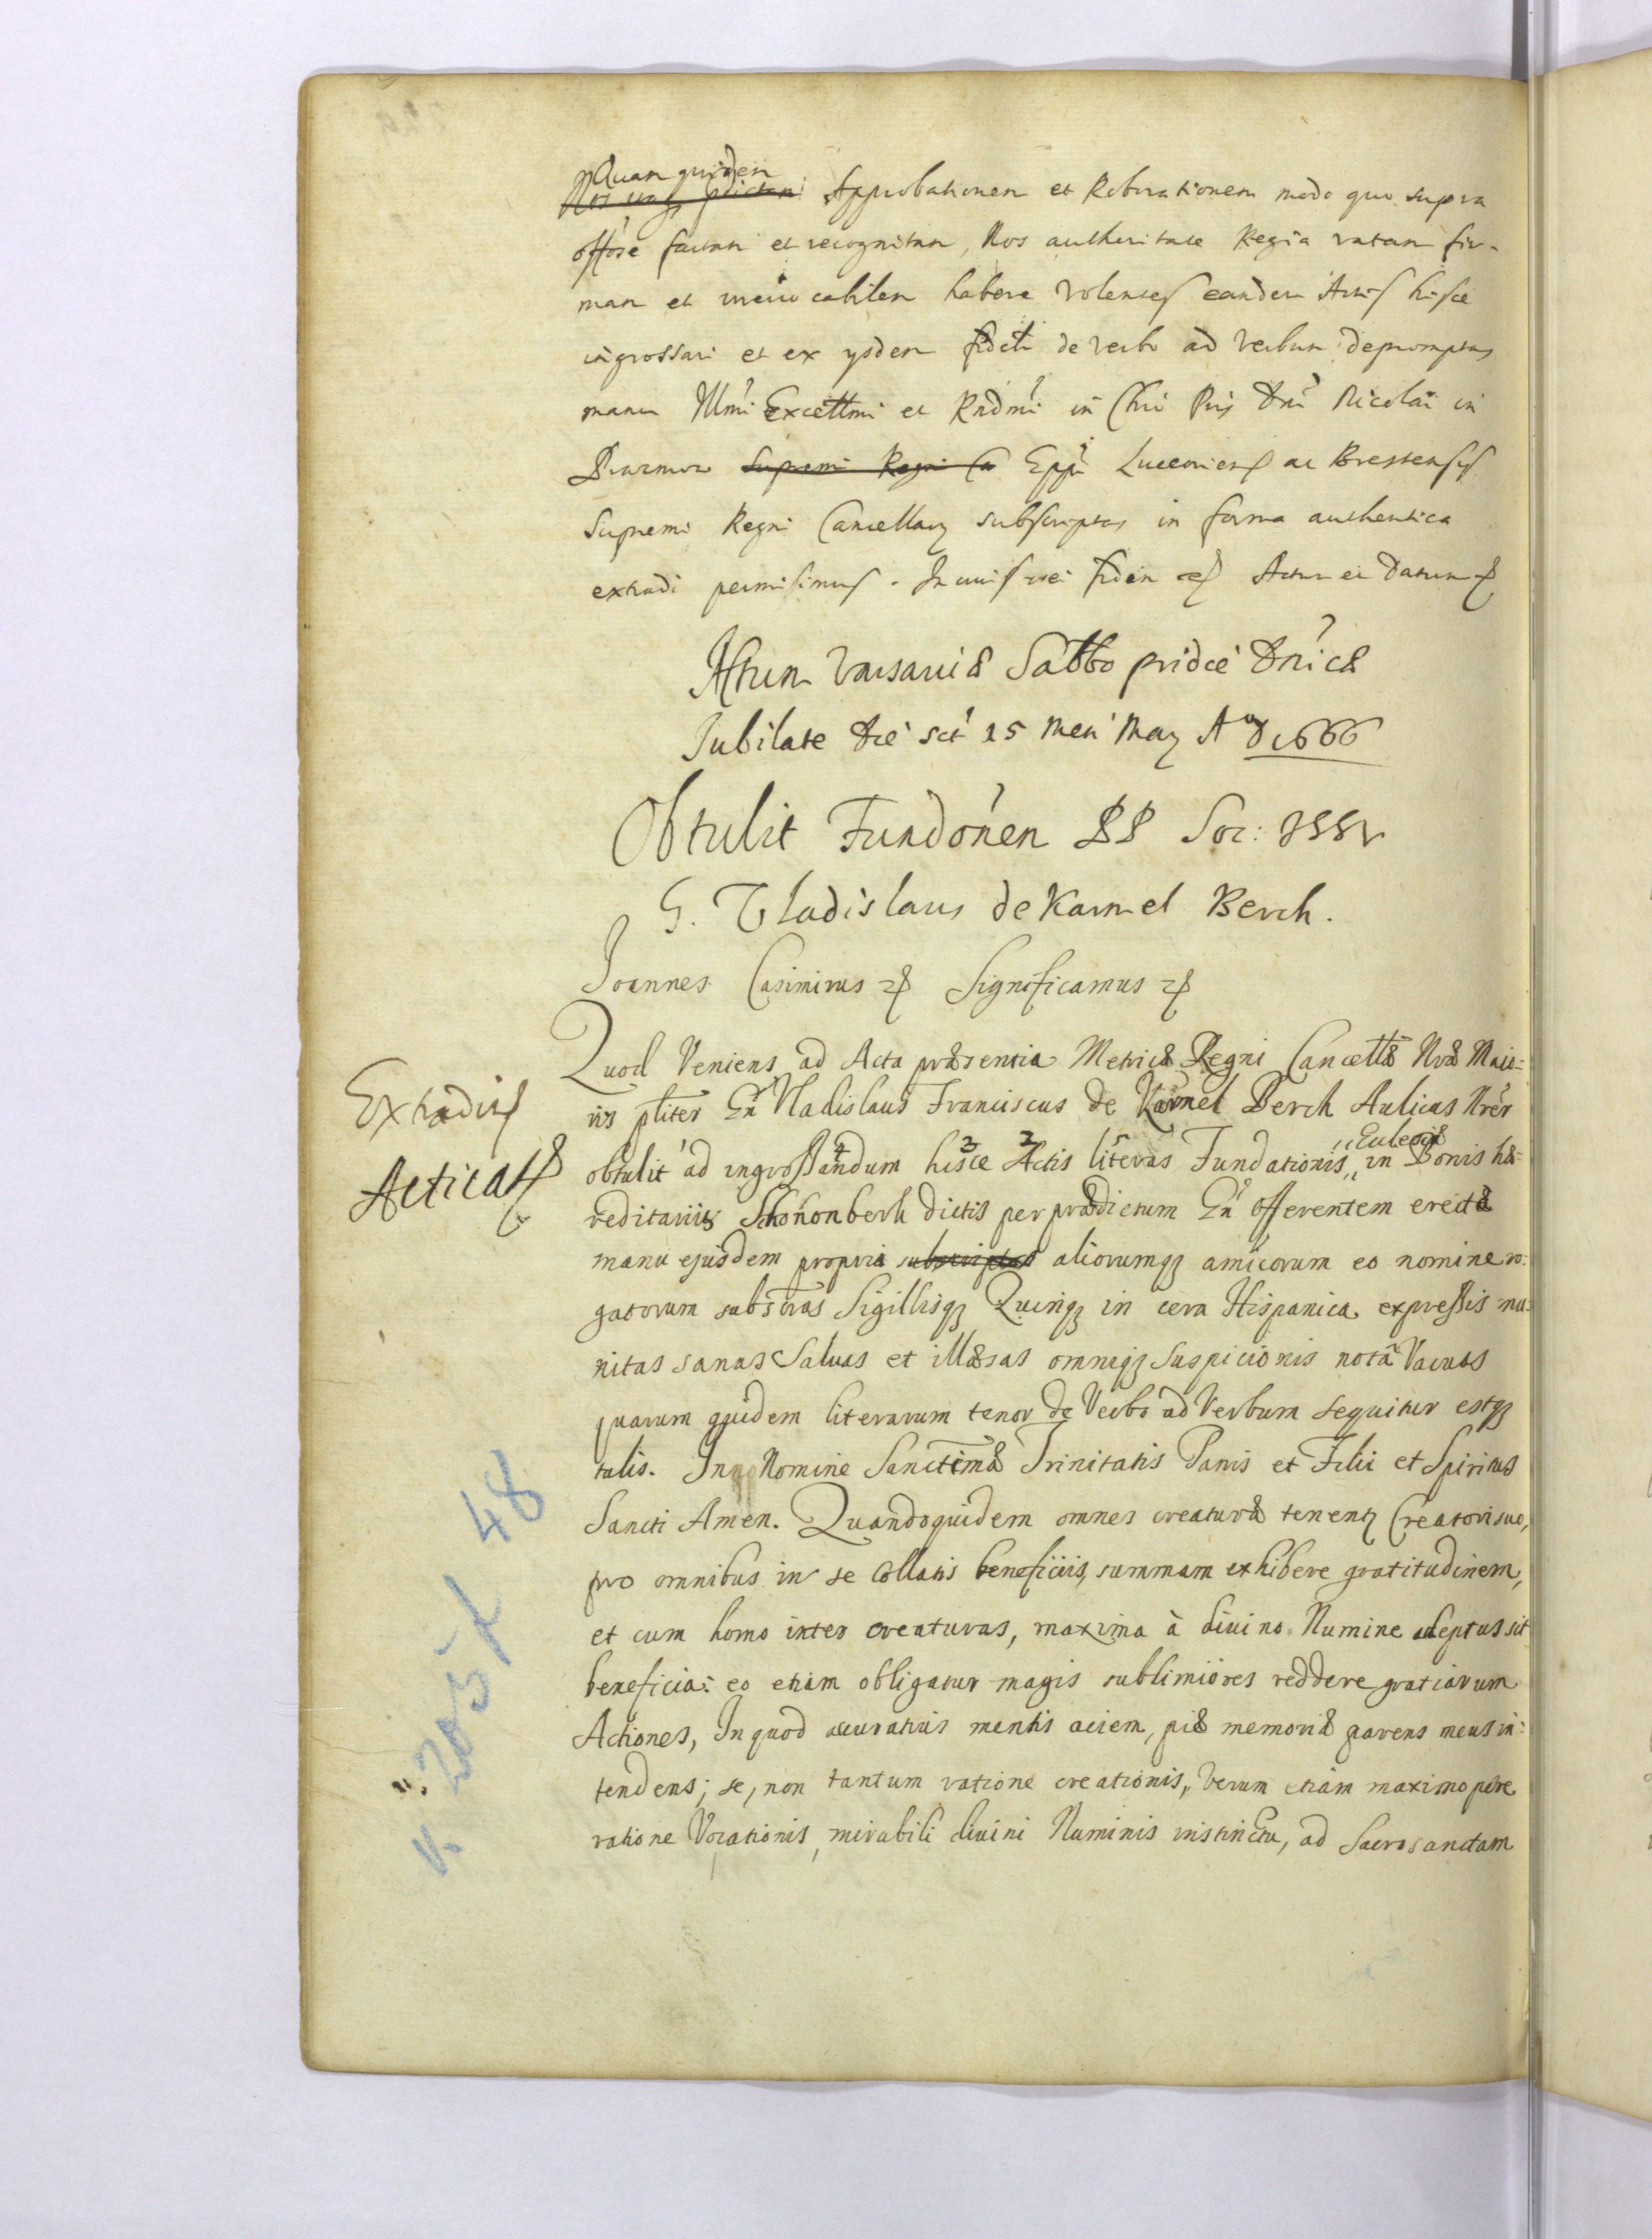 Quam quidem
Approbationem et Roborationem modo quo supra
offose factam et recognitam, Nos authoritate Regia ratam fir-
mam et irrevocabilem habere Volentes eandem Actis hisce
ingrossari et ex ysdem fideli de verbo ad verbum depromptas
manu Illmi Excellmi et Rndmi in Chri Pris Dni Nicolai in
Prazmow Supremi Regni Ca Eppi Luceorien ac Brestensis
Supremi Regni Cancellarij subscriptas in forma authentica
extradi permisimus. In cuius rei fidem etc Actum et Datum etc
Actum Varsaviæ Sabbo pridie Dnicæ
Jubilate die sct 15 Men May A D 1666
Obtulit Fundonem PP Soc: JESU
G. Vladislaus de Karmel Berch.
Joannes Casimirus etc Significamus etc
Quod Veniens ad Acta præsentia Metricæ Regni Cancellæ Nræ Maio-
ris pliter Gn Vladislaus Franciscus de Karmel Berch Aulicus Nrer
Ecclesiæ
obtulit ad ingrossandum hisce Actis literas Fundationis,, in Bonis hæ-
reditariis Schononberk dictis per prædictum Gn offerentem erectæ
manu ejusdem propria subscriptas aliorumq amicorum eo nomine ro-
gatorum subscras Sigillisq Quinq in cera Hispanica expressis mu-
nitas sanas Salvas et illæsas omniq suspicionis notâ Vacuas
quarum quidem literarum tenor de Verbo ad Verbum sequitur estq
talis. In Nomine Sanctimæ Trinitatis Patris et Filii et Spiritus
Sancti Amen. Quandoquidem omnes creaturæ tenentr Creatori suo,
pro omnibus in se collatis beneficiis, summam exhibere gratitudinem,
et cum homo inter creaturas, maxima à divino Numine adeptus sit
beneficia: eo etiam obligatur magis sublimiores reddere gratiarum
Actiones, In quod accuratius mentis aciem, piæ memoriæ parens meus in-
tendens; se, non tantum ratione creationis, Verum etiam maximopere
ratione Vocationis, mirabili divini Numinis instinctu, ad Sacrosanctam
Extradit
Acticat
48